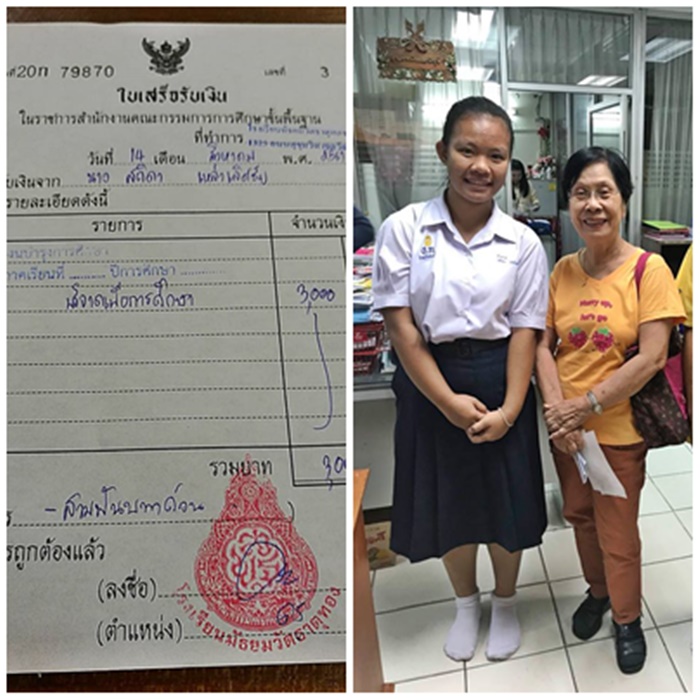 ที่ 20ก 79870 เลขที่ 3
ใบเสร็จรับเงิน
ในราชการสำนักงานคณะกรรมการการศึกษาขั้นพื้นฐาน
ที่ทำการ
วันที่ 14 เดือน สิงหาคม พ.ศ.
รับเงินจาก นาง
รายละเอียดดังนี้
รายการ จำนวนเงิน
เงินบำรุงการศึกษา
ภาคเรียนที่ ปีการศึกษา
บริจาคเพื่อการศึกษา 3,000
รวมบาท 3,0
- สามพันบาทถ้วน )
ารถูกต้องแล้ว
(ลงชื่อ)
(ตำแหน่ง)
โรงเรียนมัธยมวัดธาตุทอง
Hurry up,
let's go